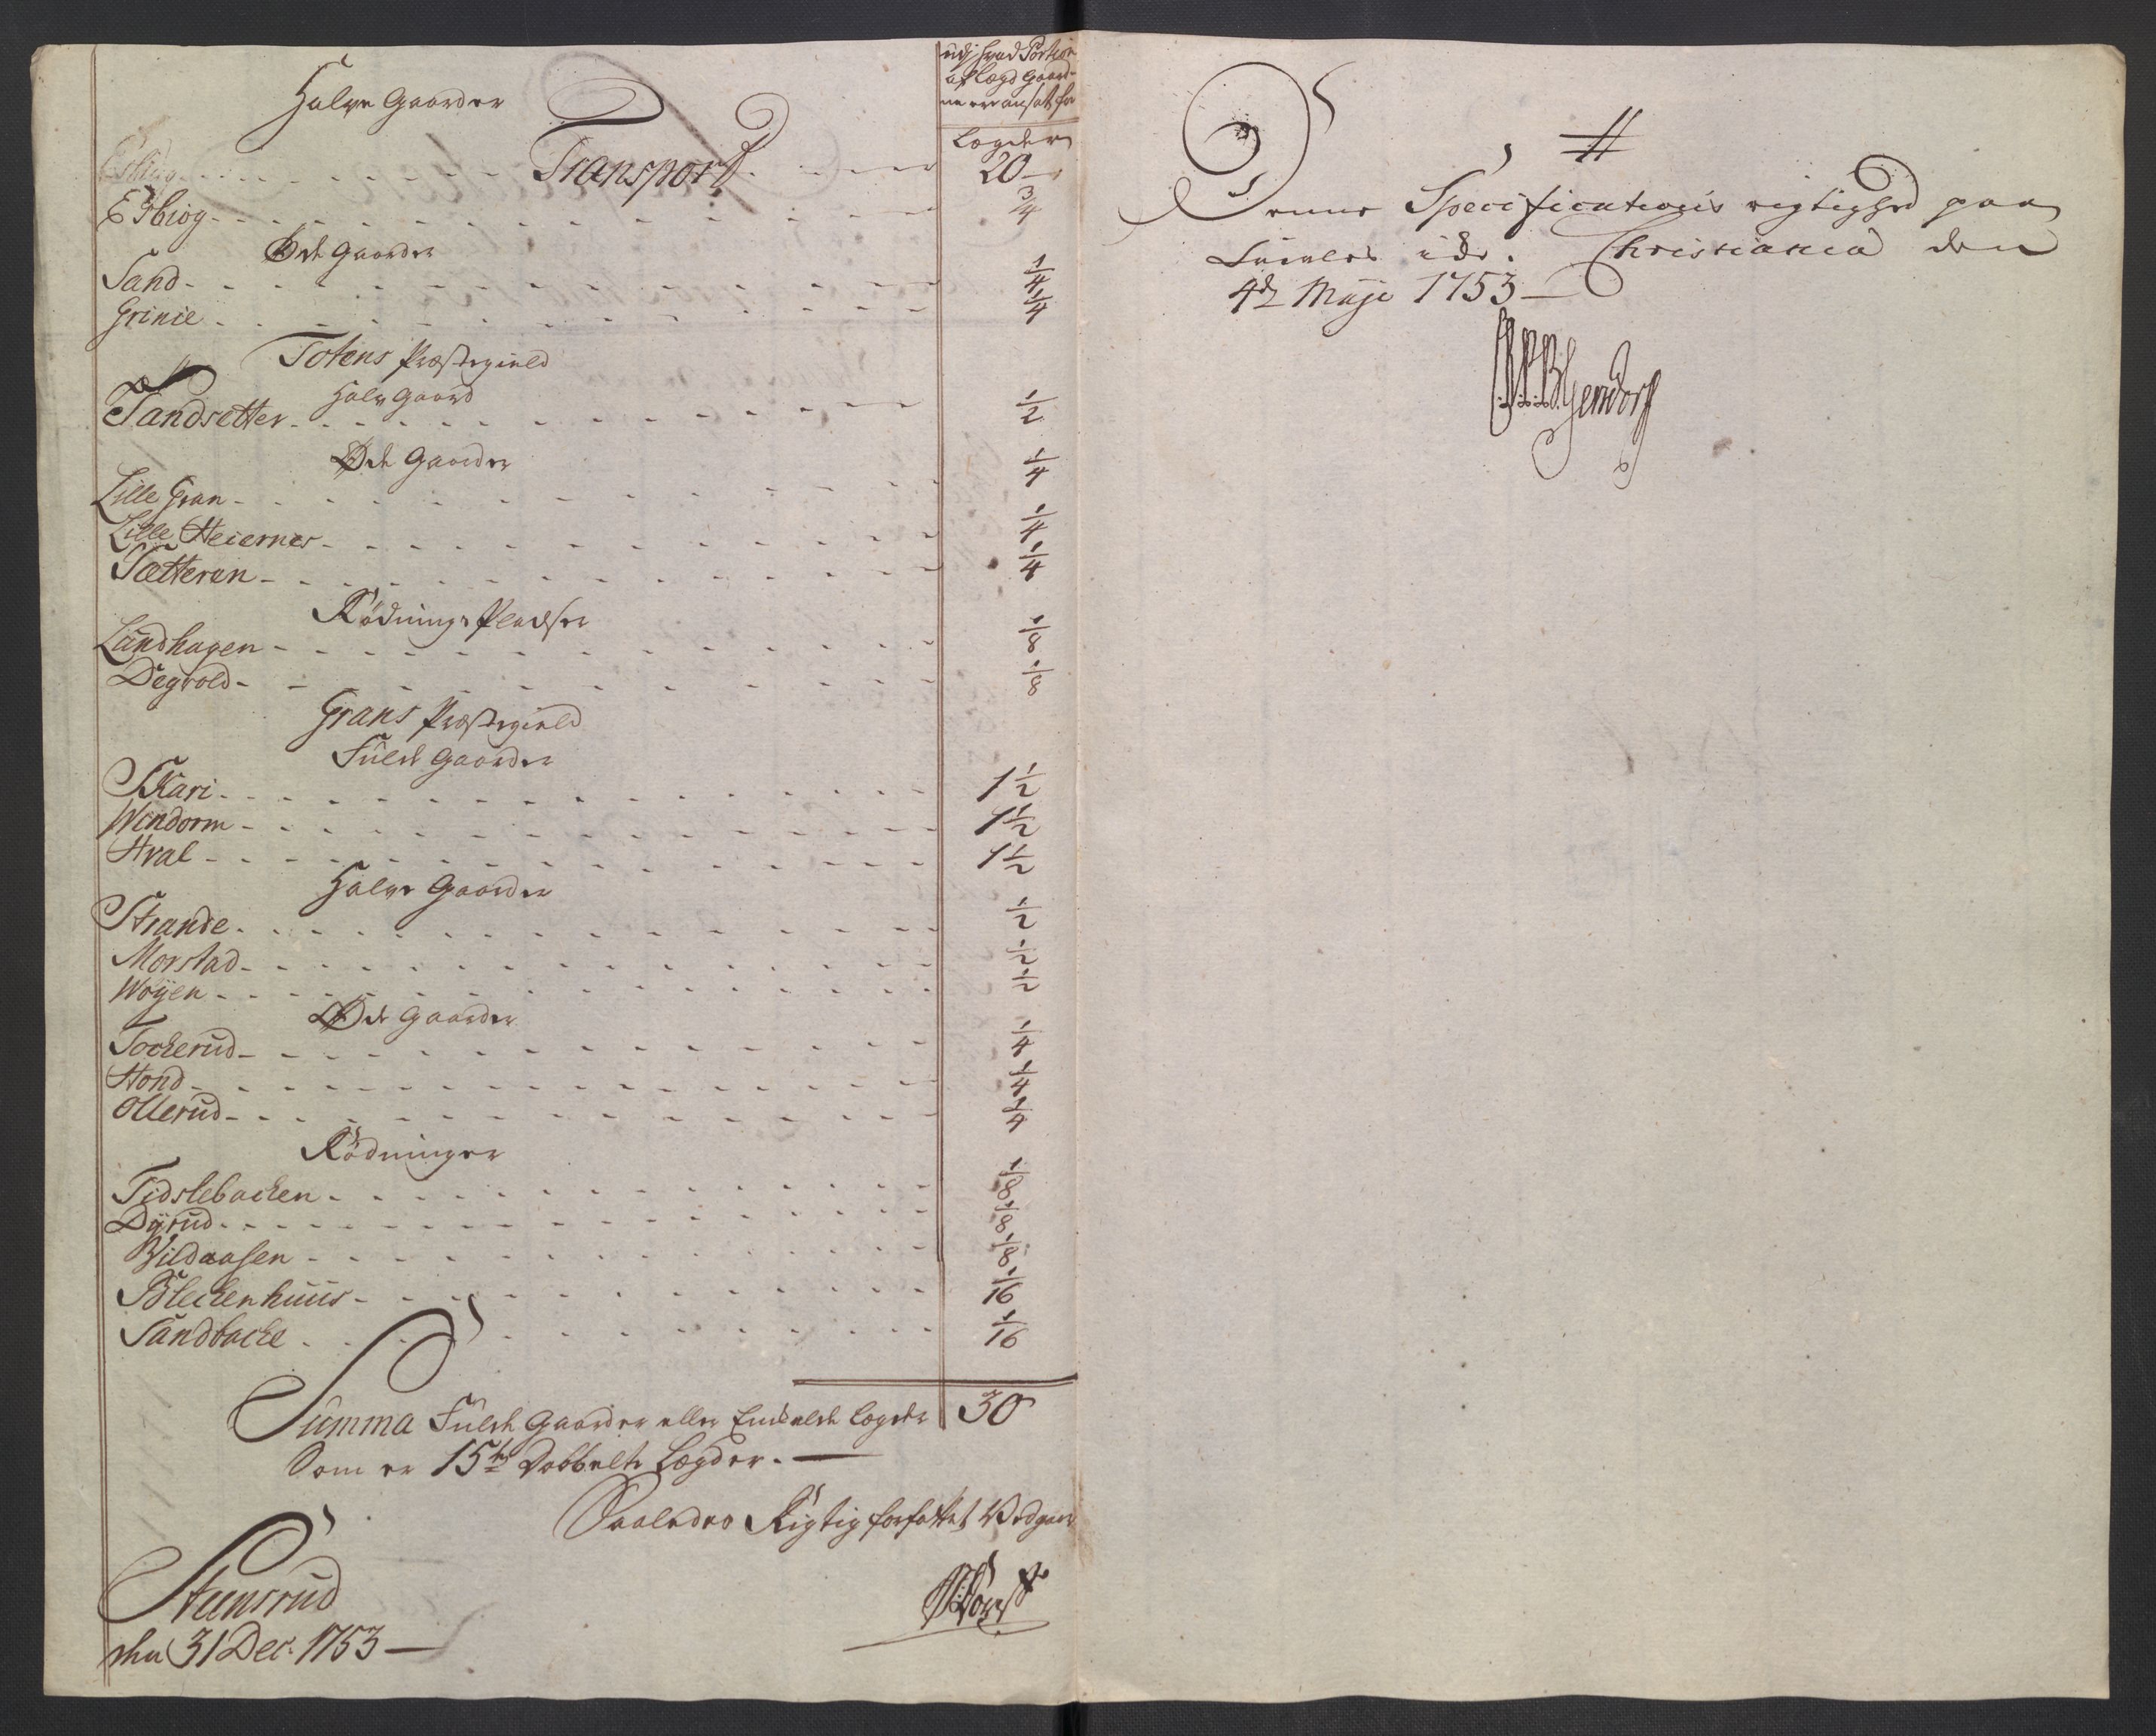 udj hvad Portion
af Lægd Gaard-
ne ere ansat for
Halve Gaarder
Lægder
Transport 20
Egbiog 3/4
Øde Gaarder
Sand 1/4
Grinie 1/4
Totens Præstegield
Halv Gaard
Tandsetter 1/2
Øde Gaarder
Lille Gran 1/4
Lille Heiernes 1/4
Sætteren 1/4
Rødnings Pladser
Landhagen 1/8
Degvold 1/8
Grans Præstegield
Fulde Gaarder
Skari 1 1/2
Wendorm 1 1/2
Hval 1 1/2
Halve Gaarder
Strande 1/2
Morstad 1/2
Woyen 1/2
Øde Gaarder
Tockerud 1/4
Hond 1/4
Ollerud 1/4
Rødninger
Tidslebacken 1/8
Dyrud 1/8
Bildaasen 1/8
Bleckenhuus 1/16
Sandbacke 1/16
Summa Fulde Gaarder eller Enckelde Lægder 30
Som er 15 Dobbelte Lægder.
Saaledes Rigtig forfattet Vedgaar
Steensrud
den 31 Dec. 1753
Denne Specifications rigtighed paa
Christiania den
4de Maje 1753